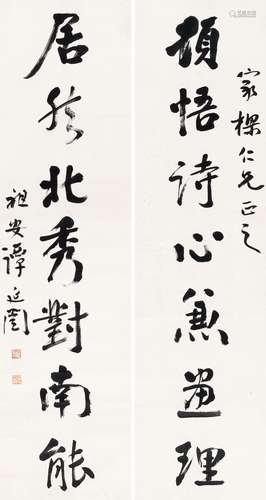 家樑仁兄正之
頓悟詩心兼畫理
居然北秀對南能
祖安譚延闓